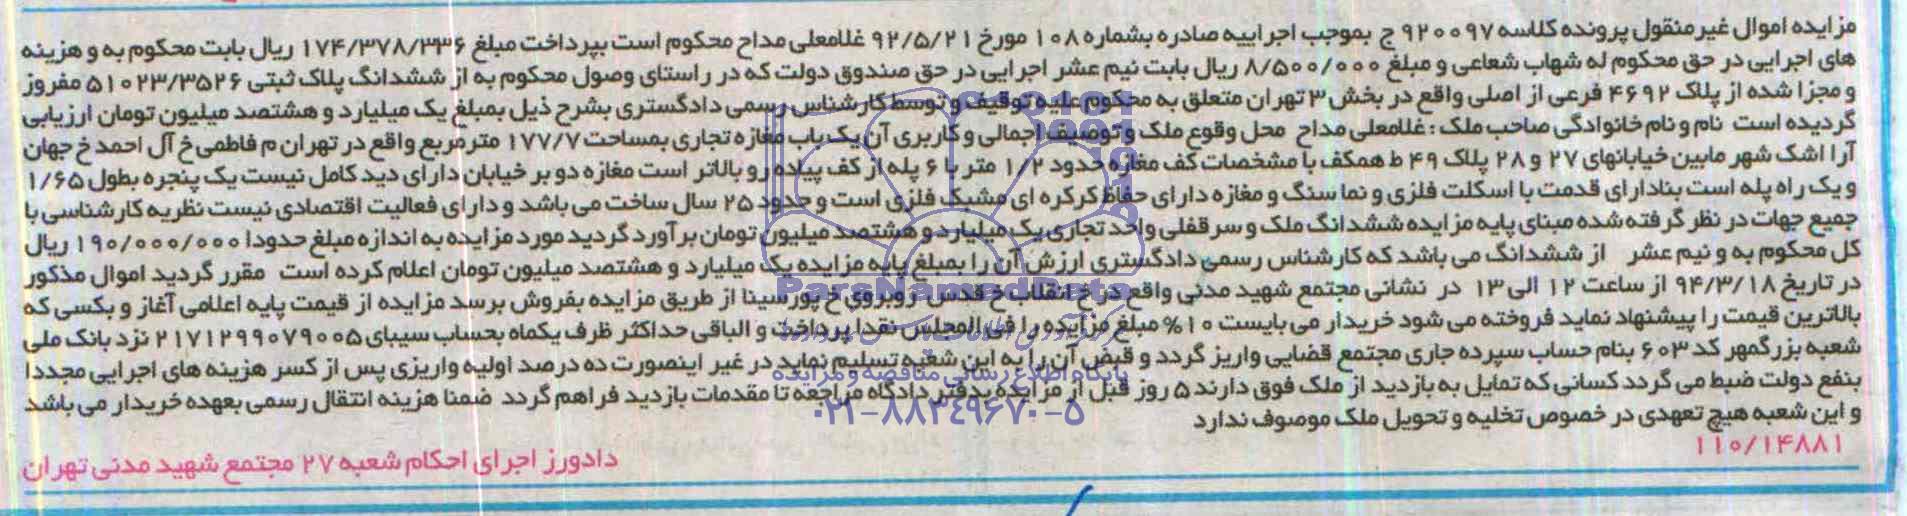 مزایده اموال غیرمنقول پرونده کلاسه ۹۲۰۰۹۷ ج بموجب اجراییه صادره بشماره ۱۰۸ مورخ ۹۲/۵/۲۱ غلامعلی مداح محکوم است بپرداخت مبلغ ۱۷۴/۳۷۸/۳۳۶ ریال بابت محکوم به و هزینه
های اجرایی در حق محکوم له شهاب شعاعی و مبلغ ۸/۵۰۰/۰۰۰ ریال بابت نیم عشر اجرایی در حق صندوق دولت که در راستای وصول محکوم به از ششدانگ پلاک ثبتی ۵۱۰۲۳/۳۵۲۶ مفروز
و مجزا شده از پلاک ۴۶۹۲ فرعی از اصلی واقع در بخش ۳ تهران متعلق به محکوم علیه توقیف و توسط کارشناس رسمی دادگستری بشرح ذیل بمبلغ یک میلیارد و هشتصد میلیون تومان ارزیابی
گردیده است نام و نام خانوادگی صاحب ملک : غلامعلی مداح محل وقوع ملک و توصیف اجمالی و کاربری آن یک باب مغازه تجاری بمساحت ۱۷۷/۷ مترمربع واقع در تهران م فاطمی خ آل احمد خ جهان
آرا اشک شهر مابین خیابانهای ۲۷ و ۲۸ پلاک ۴۹ ط همکف با مشخصات کف مغازه حدود ۱/۲ متر با ۶ پله از کف پیاده رو بالاتر است مغازه دو بر خیابان دارای دید کامل نیست یک پنجره بطول ۱/۶۵
و یک راه پله است بنادارای قدمت با اسکلت فلزی و نما سنگ و مغازه دارای حفاظ کرکره ای مشبک فلزی است و حدود ۲۵ سال ساخت می باشد و دارای فعالیت اقتصادی نیست نظریه کارشناسی با
جمیع جهات در نظر گرفته شده مبنای پایه مزایده ششدانگ ملک و سرقفلی واحد تجاری یک میلیارد و هشتصد میلیون تومان برآورد گردید مورد مزایده به اندازه مبلغ حدودا ۱۹۰/۰۰۰/۰۰۰ ریال
کل محکوم به و نیم عشر از ششدانگ می باشد که کارشناس رسمی دادگستری ارزش آن را بمبلغ پایه مزایده یک میلیارد و هشتصد میلیون تومان اعلام کرده است مقرر گردید اموال مذکور
در تاریخ ۹۴/۳/۱۸ از ساعت ۱۲ الی ۱۳ در نشانی مجتمع شهید مدنی واقع در خ انقلاب خ قدس روبروی خ پورسینا از طریق مزایده بفروش برسد مزایده از قیمت پایه اعلامی آغاز و بکسی که
بالاترین قیمت را پیشنهاد نماید فروخته می شود خریدار می بایست ۱۰% مبلغ مزایده را فی المجلس نقدا پرداخت و الباقی حداکثر ظرف یکماه بحساب سیبای ۲۱۷۱۲۹۹۰۷۹۰۰۵ نزد بانک ملی
شعبه بزرگمهر کد ۶۰۳ بنام حساب سپرده جاری مجتمع قضایی واریز گردد و قبض آن را به این شعبه تسلیم نماید در غیر اینصورت ده درصد اولیه واریزی پس از کسر هزینه های اجرایی مجددا
بنفع دولت ضبط می گردد کسانی که تمایل به بازدید از ملک فوق دارند ۵ روز قبل از مزایده بدفتر دادگاه مراجعه تا مقدمات بازدید فراهم گردد ضمنا هزینه انتقال رسمی بعهده خریدار می باشد
و این شعبه هیچ تعهدی در خصوص تخلیه و تحویل ملک موصوف ندارد
۱۱۰/۱۴۸۸۱
دادورز اجرای احکام شعبه ۲۷ مجتمع شهید مدنی تهران
ParsNamadData
پایگاه اطلاع رسانی مناقصه و مزایده
۰۲۱-۸۸۳۴۹۶۷۰-۵